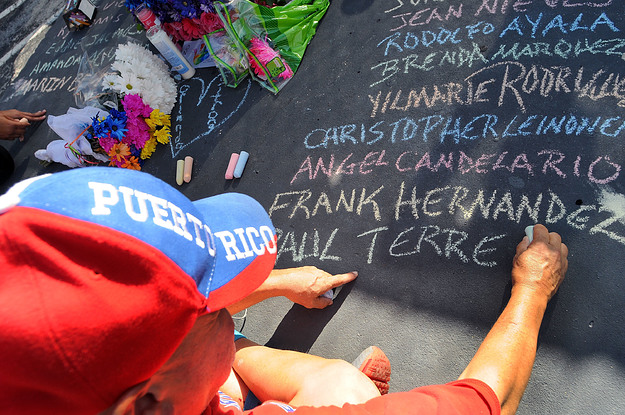 JEAN NIEVES
RODOLFO AYALA
BRENDA MARQUEZ
YILMARIE RODRIGUE
CHRISTOPHER LEINONEN
ANGEL CANDELARIO
FRANK HERNANDEZ
PAUL TERRE
AMANDA
PUERTO RICO